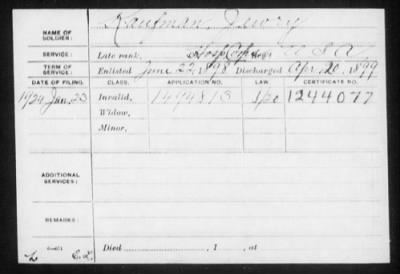 NAME OF SOLDIER: Kaufman, Dewry
SERVICE: Late rank, Hosp Corps U S A
TERM OF SERVICE: Enlisted June 22, 1898 Discharged Apr. 20, 1899
DATE OF FILING. CLASS. APPLICATION NO. LAW. CERTIFICATE NO.
1924 Jan. 23 Invalid, 1494813 1244077
Widow,
Minor,
ADDITIONAL SERVICES:
REMARKS:
Died , 1 , at